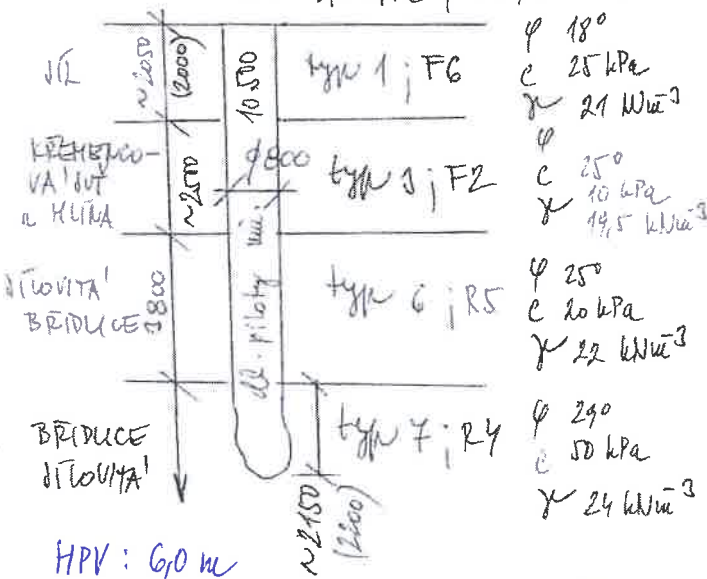 JÍL
~2050
(2000)
10.500
typ 1 ; F6
φ 18°
c 25 kPa
γ 21 kNm⁻³
KŘEMENCO-
VÁ SUŤ
a HLÍNA
~2500
ϕ800
typ 3 ; F2
φ
c 25°
γ 10 kPa
19,5 kNm⁻³
JÍLOVITÁ
BŘIDLICE
3800
dl. piloty min.
typ 6 ; R5
φ 25°
c 20 kPa
γ 22 kNm⁻³
BŘIDLICE
JÍLOVITÁ
typ 7 ; R4
φ 29°
c 50 kPa
γ 24 kNm⁻³
~2150
(2200)
HPV : 6,0 m